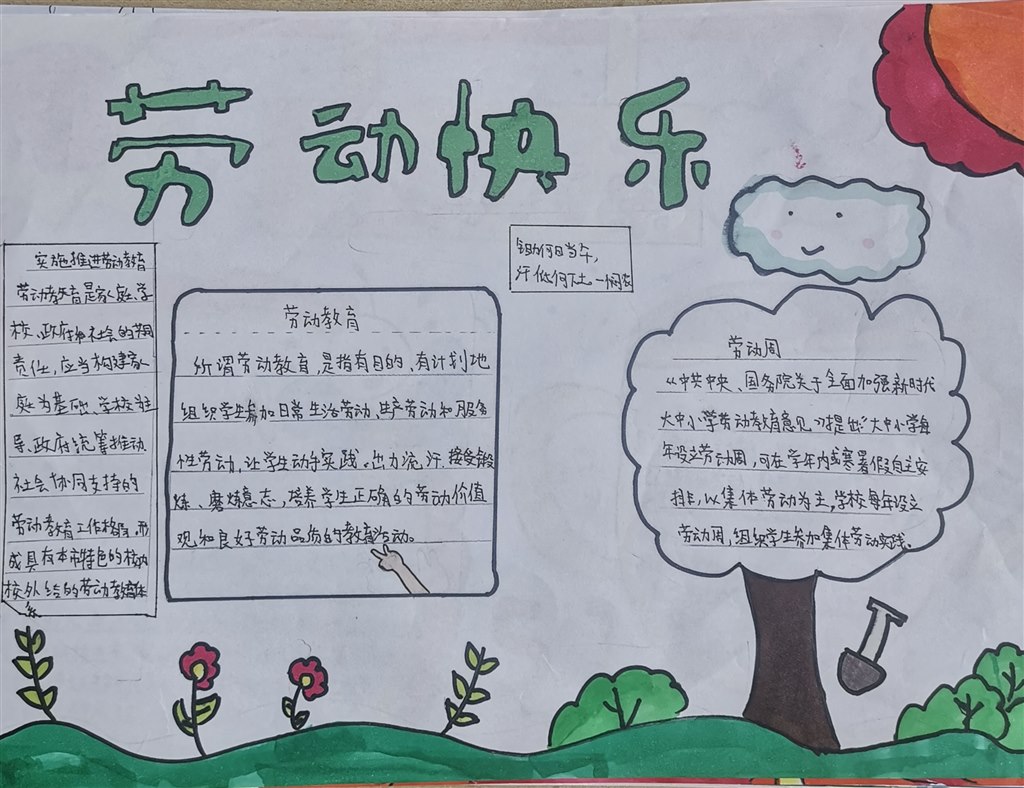 劳动快乐
实施推进劳动教育
劳动教育是家庭、学
校、政府和社会的共同
责任,应当构建家
庭为基础、学校为主
导、政府统筹推动
社会协同支持的
劳动教育工作格局,形
成具有本市特色的校内
校外结的劳动教育体
系
劳动教育
所谓劳动教育,是指有目的、有计划地
组织学生参加日常生活劳动、生产劳动和服务
性劳动,让学生动手实践、出力流汗、接受锻
炼、磨炼意志,培养学生正确的劳动价值
观和良好劳动品质的教育活动。
锄何日当午,
汗低何下土 一
劳动周
从中共中央、国务院关于全面加强新时代
大中小学劳动教育意见》提出"大中小学每
年设立劳动周,可在学年内或寒暑假自主安
排,以集体劳动为主,学校每年设立
劳动周,组织学生参加集体劳动实践。